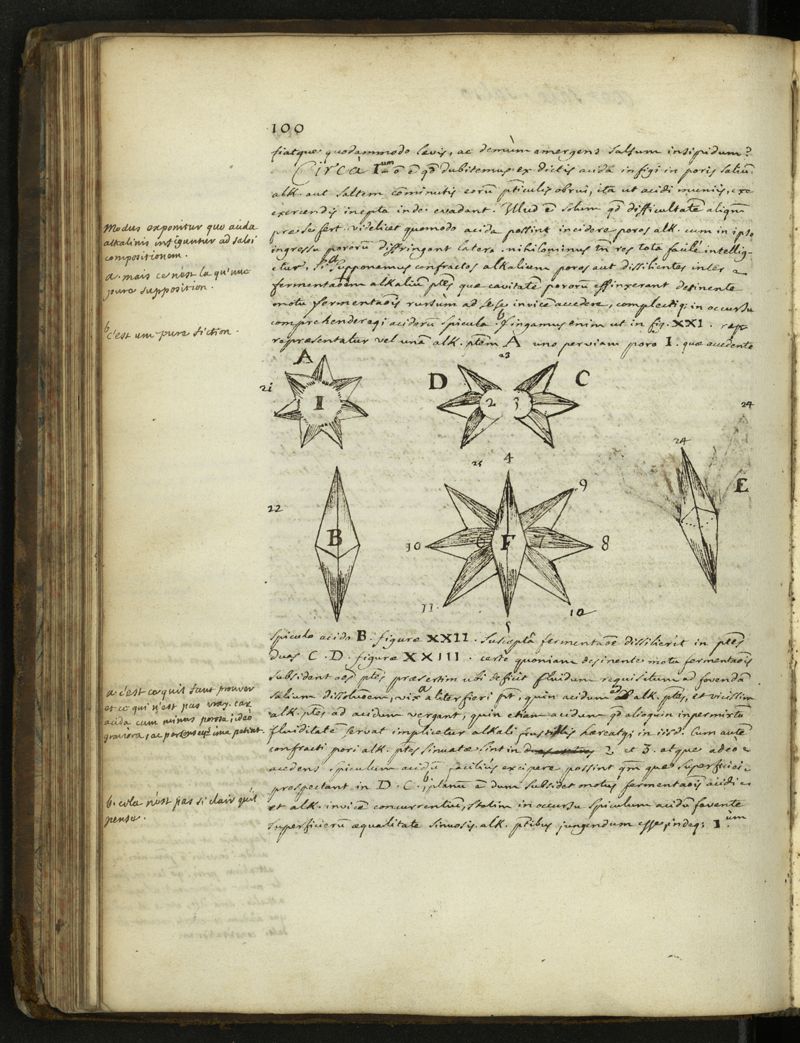 100
fiatque quodammodo levis, ac demùm emergens salsum insipidum?
Circa Ium ē qd dubitemus ex dictis acida infigi in poris saliū
alk. aut saltem cōminutis eorū pticulis obrui, ita ut acidi muniis, ex
exerendis inepta inde evadant. Illud ē solum qd difficultatē aliqm
præ se fert. videlicet quomodo acida possint incidere poros alk. cum in ipso
ingressu pororū diffringant latera. nihilominus tn res tota facile intellig-
etur, si a Supponamus confractos alkalium poros aut dissilientes inter
fermentaōem alkaliū ptes quæ cavitatē pororū effinxerant desinente
motu fermentaōis rursùm ad sese invicē accedere, complectiq; in occursu
comprehendereq; acidorū spicula b fingamus enim ut in fig. XXI. rep-
repræsentatur vel unā alk. ptem A uno perviam poro I. quæ accedente
Modus exponitur quo acida
alkalinis infiguntur ad salsi
compositionem.
a. mais ce n'est la qu'une
pure supposition.
b c'est une pure fiction.
A
21
I
23
D
2
3
C
24
24
E
22
B
25
4
9
10
6
F
7
8
11
5
12
spiculo acido B. figuræ XXII. susceptâ fermentaōe dissilierit in ptes
duas C. D. figuræ XXIII. certe quoniam desinente motu fermentaōis
subsident aes ptes præsertim ubi deficit fluidum requisitum ad fovendā
salium dissoluōem, vix a aliter fieri pt, quin acidum ad alk. ptes, et vicissim
alk. ptes ad acidum vergant, quin etiam acidum qd alioquin inpermixtū
fluiditatē servat implicetur alkali frustulis hæreatq; in iisd. Cum autē
confracti pori alk. ptes sinuatæ sint in 2. et 3. atque adeo
accedens spiculum acidū faciliùs excipere possint qm quæ superficiei
prospectant in D. C. b. planū ē dum subsidet motus fermentaōis acidi
et alk. invicē concurrentiū, statim in occursu spiculum acidū favente
superficierū æqualitate sinuosis alk. ptibus jungendum esse indeq; 1um
a c'est ce qu'il faut prouver
et ce qui n'est pas vray. car
acida cum minus porosa, ideo
graviora, ac
b. cela n'est pas si clair qu'il
pense.